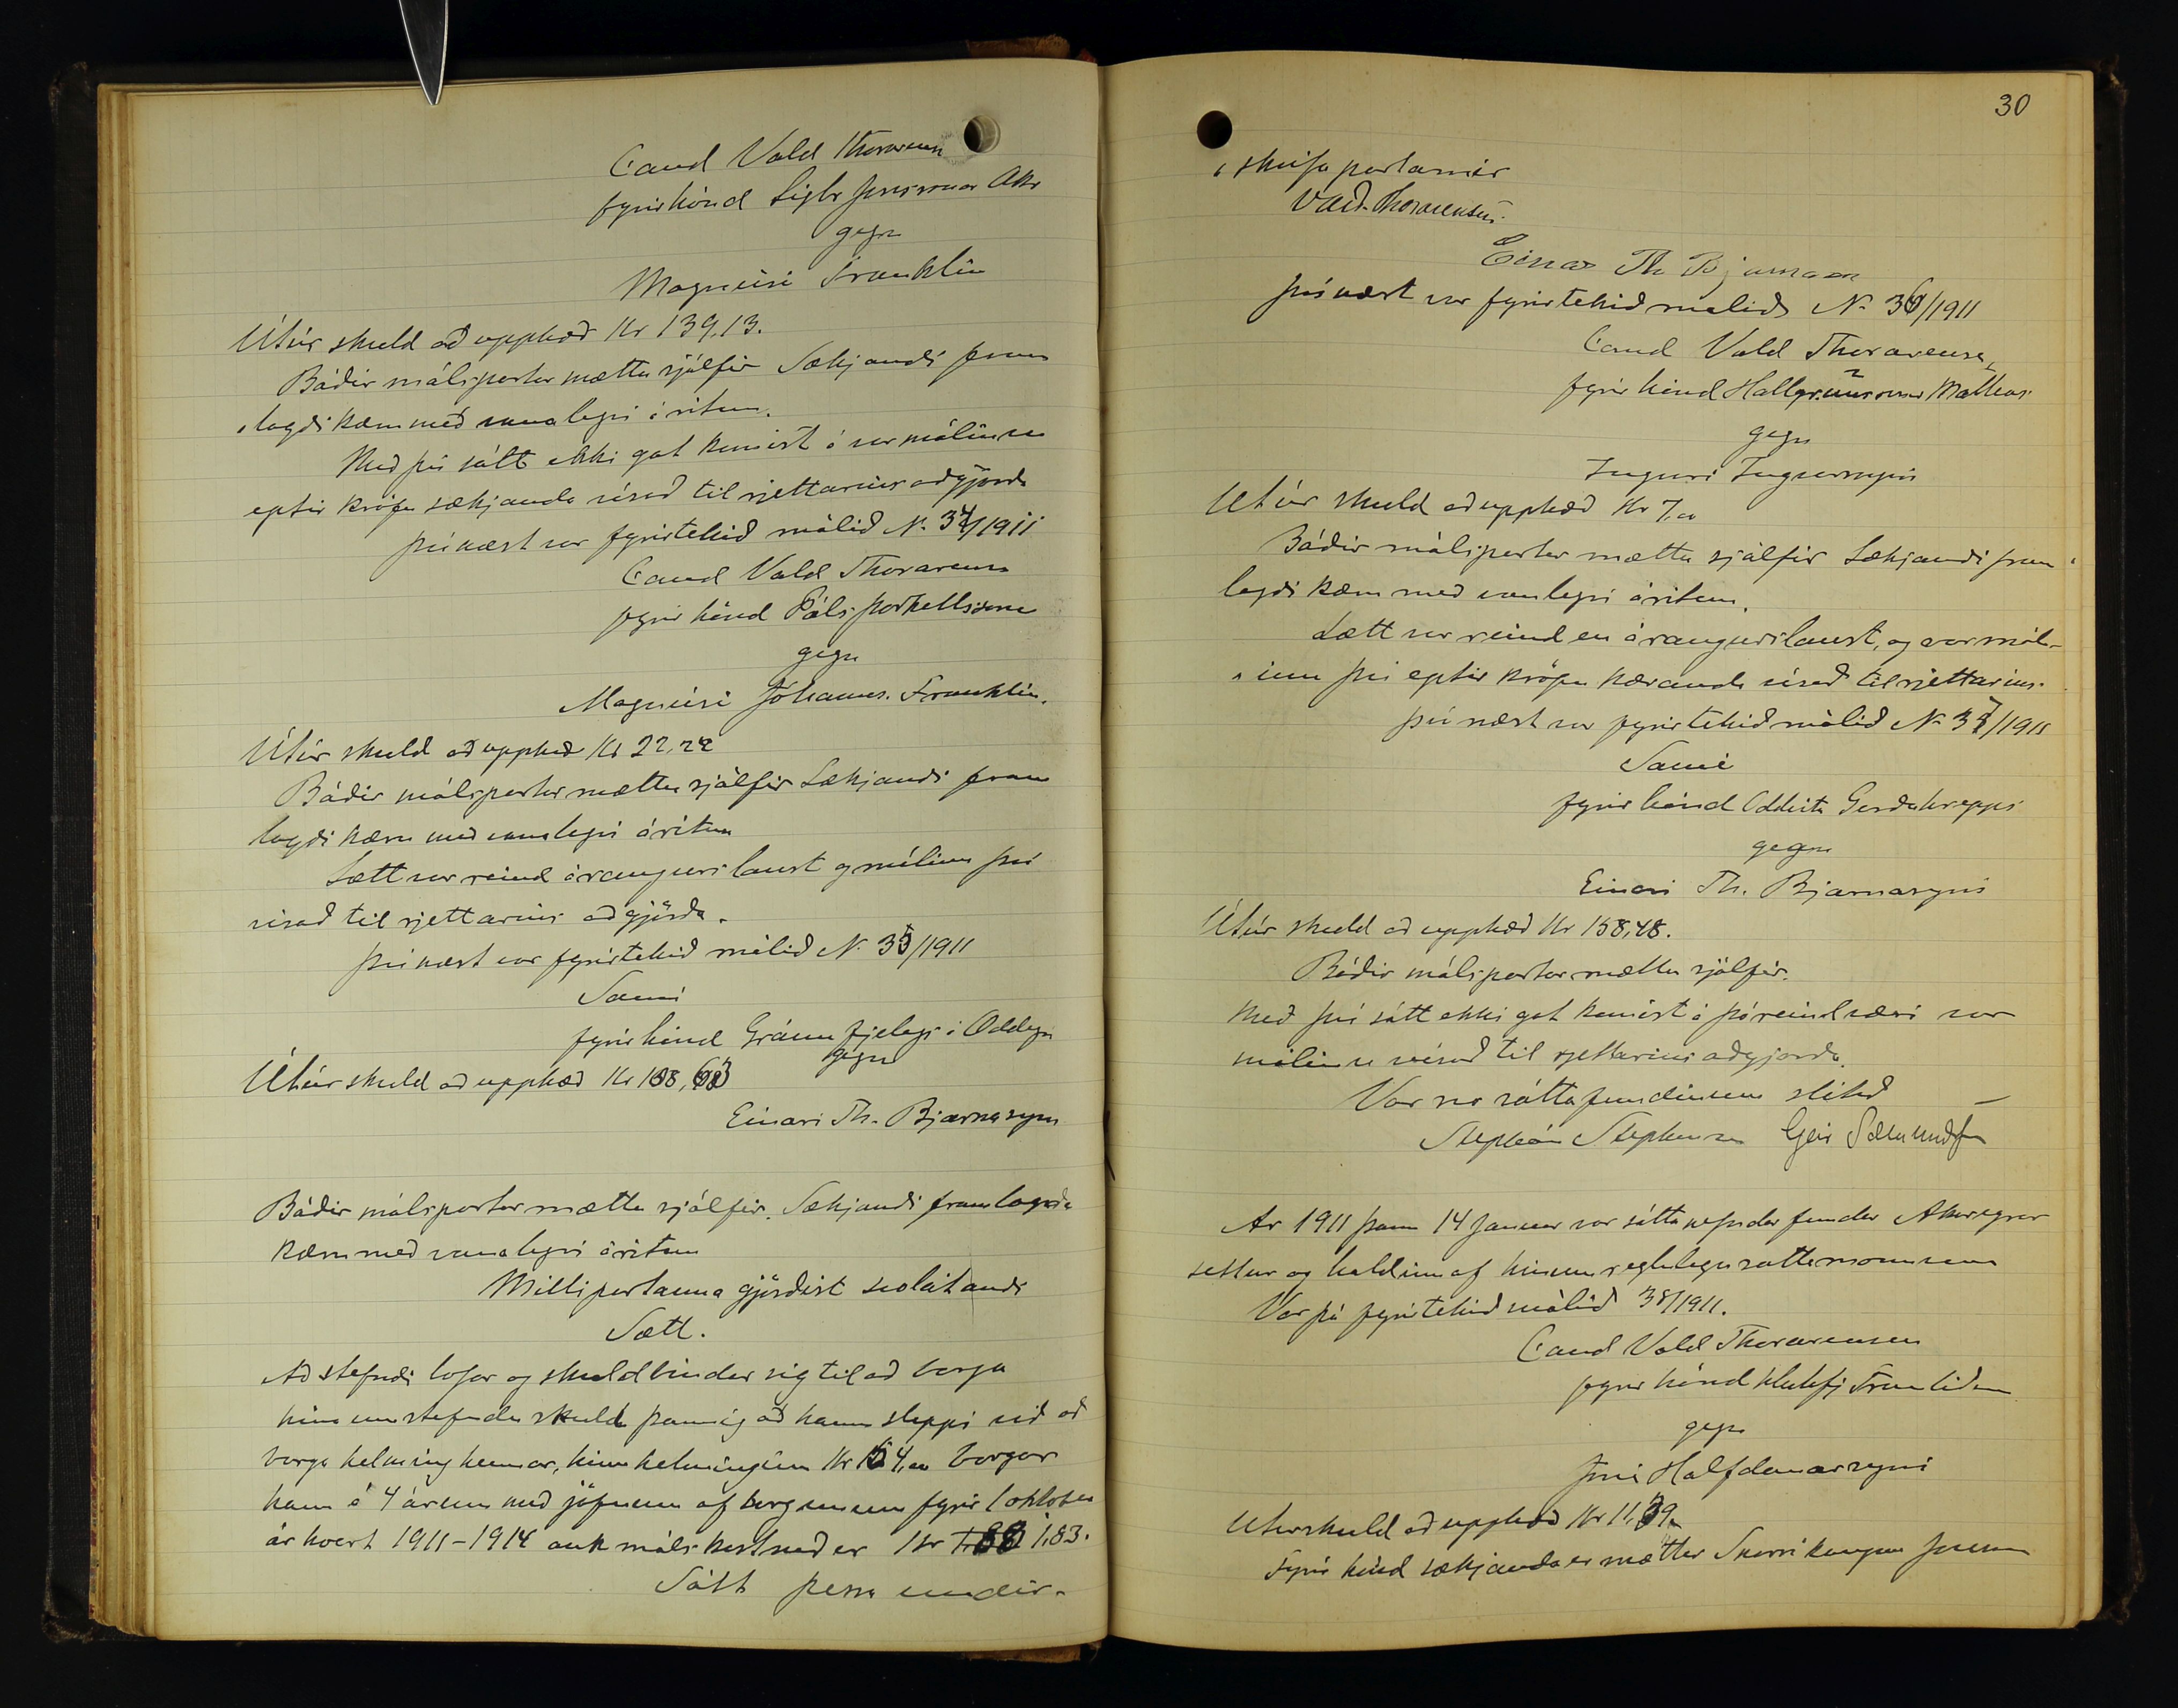 Cand Vald Thorarensen
fyrir hönd Sigbr Jónssonar Akr
gegn
Magnúsi Franklín
Útúr skuld að upphæð Kr 139,13.
Báðir málspartar mættu sjálfir Sækjandi fram
lagði kæru með vanalegri áritun.
Með því sátt ekki gat komist á var málinu
eptir kröfu sækjanda vísað til rjettarins aðgjörða
Þvínæst var fyrirtekið málið N. 34/1911
Cand Vald Thorarens
fyrir hönd Páls Þorkellssonar
gegn
Magnúsi Jóhanns. Franklín.
Útúr skuld að upphæð Kr 22,22
Báðir málspartar mættu sjálfir Sækjandi fram
lagði kæru með vanalegri áritun
Sætt var reind árangurslaust og málinu því
vísað til rjettarins aðgjörða.
Þvínæst var fyrirtekið málið N. 35/1911
Sami
fyrir hönd Gránufjelags á Oddeyri
gegn
Útúr skuld að upphæð Kr
Einari Th. Bjarnasyni
Báðir málspartar mættu sjálfir. Sækjandi framlagði
kæru með vanalegri áritun
Milli partanna gjörðist svolátandi
Sætt.
Að stefndi lofar og skuldbindur sig til að borga
hina umstefndu skuld þannig að hann sleppi við að
borga helming hennar, hinn helminginn Kr 54,00 borgar
hann á 4 árum með jöfnum afborgunum fyrir 1 oktober
ár hvert 1911-1914 auk málskostnaðar Kr 1,83.
Sátt þessa undir-
30
skrifa partarnir
Vald. Thorarensen.
Einar Th Bjarnason
Þvínæst var fyrirtekið málið N. 36/1911
Cand Vald Thorarensen
fyrir hönd Hallgrímssonar Matthías
gegn
Ingvari Ingvarssyni
Útúr skuld að upphæð Kr 7,00
Báðir málspartar mættu sjálfir Sækjandi fram
lagði kæru með vanlegri áritun.
Sætt var reind en árangurslaust, og var mál-
inu því eptir kröfu kæranda vísað til rjettarins.
Því næst var fyrirtekið málið N. 37/1911
Sami
fyrir hönd Oddvita Gerðahrepps
gegn
Einari Th. Bjarnasyni
Útúr skuld að upphæð Kr 158,48.
Báðir málspartar mættu sjálfir.
Með því sátt ekki gat komist á þó reind væri var
málinu vísað til rjettarins aðgjorða.
Var svo sáttafundinum slitið
Stephán Stephensen Geir Sæmundsson
Ár 1911 þann 14 Januar var sáttanefndarfundur Akureyrar
settur og haldinn af hinum reglulegu sáttamönnum
Var þá fyrirtekið málið 38/1911.
Cand Vald Thorarensen
fyrir hönd Hlutafj Framtíðin
gegn
Jóni Halfdanarsyni
Utur skuld að upphæð Kr 11,39
Fyrir hönd sækjanda er mættur Snorri kaupm Jónsson